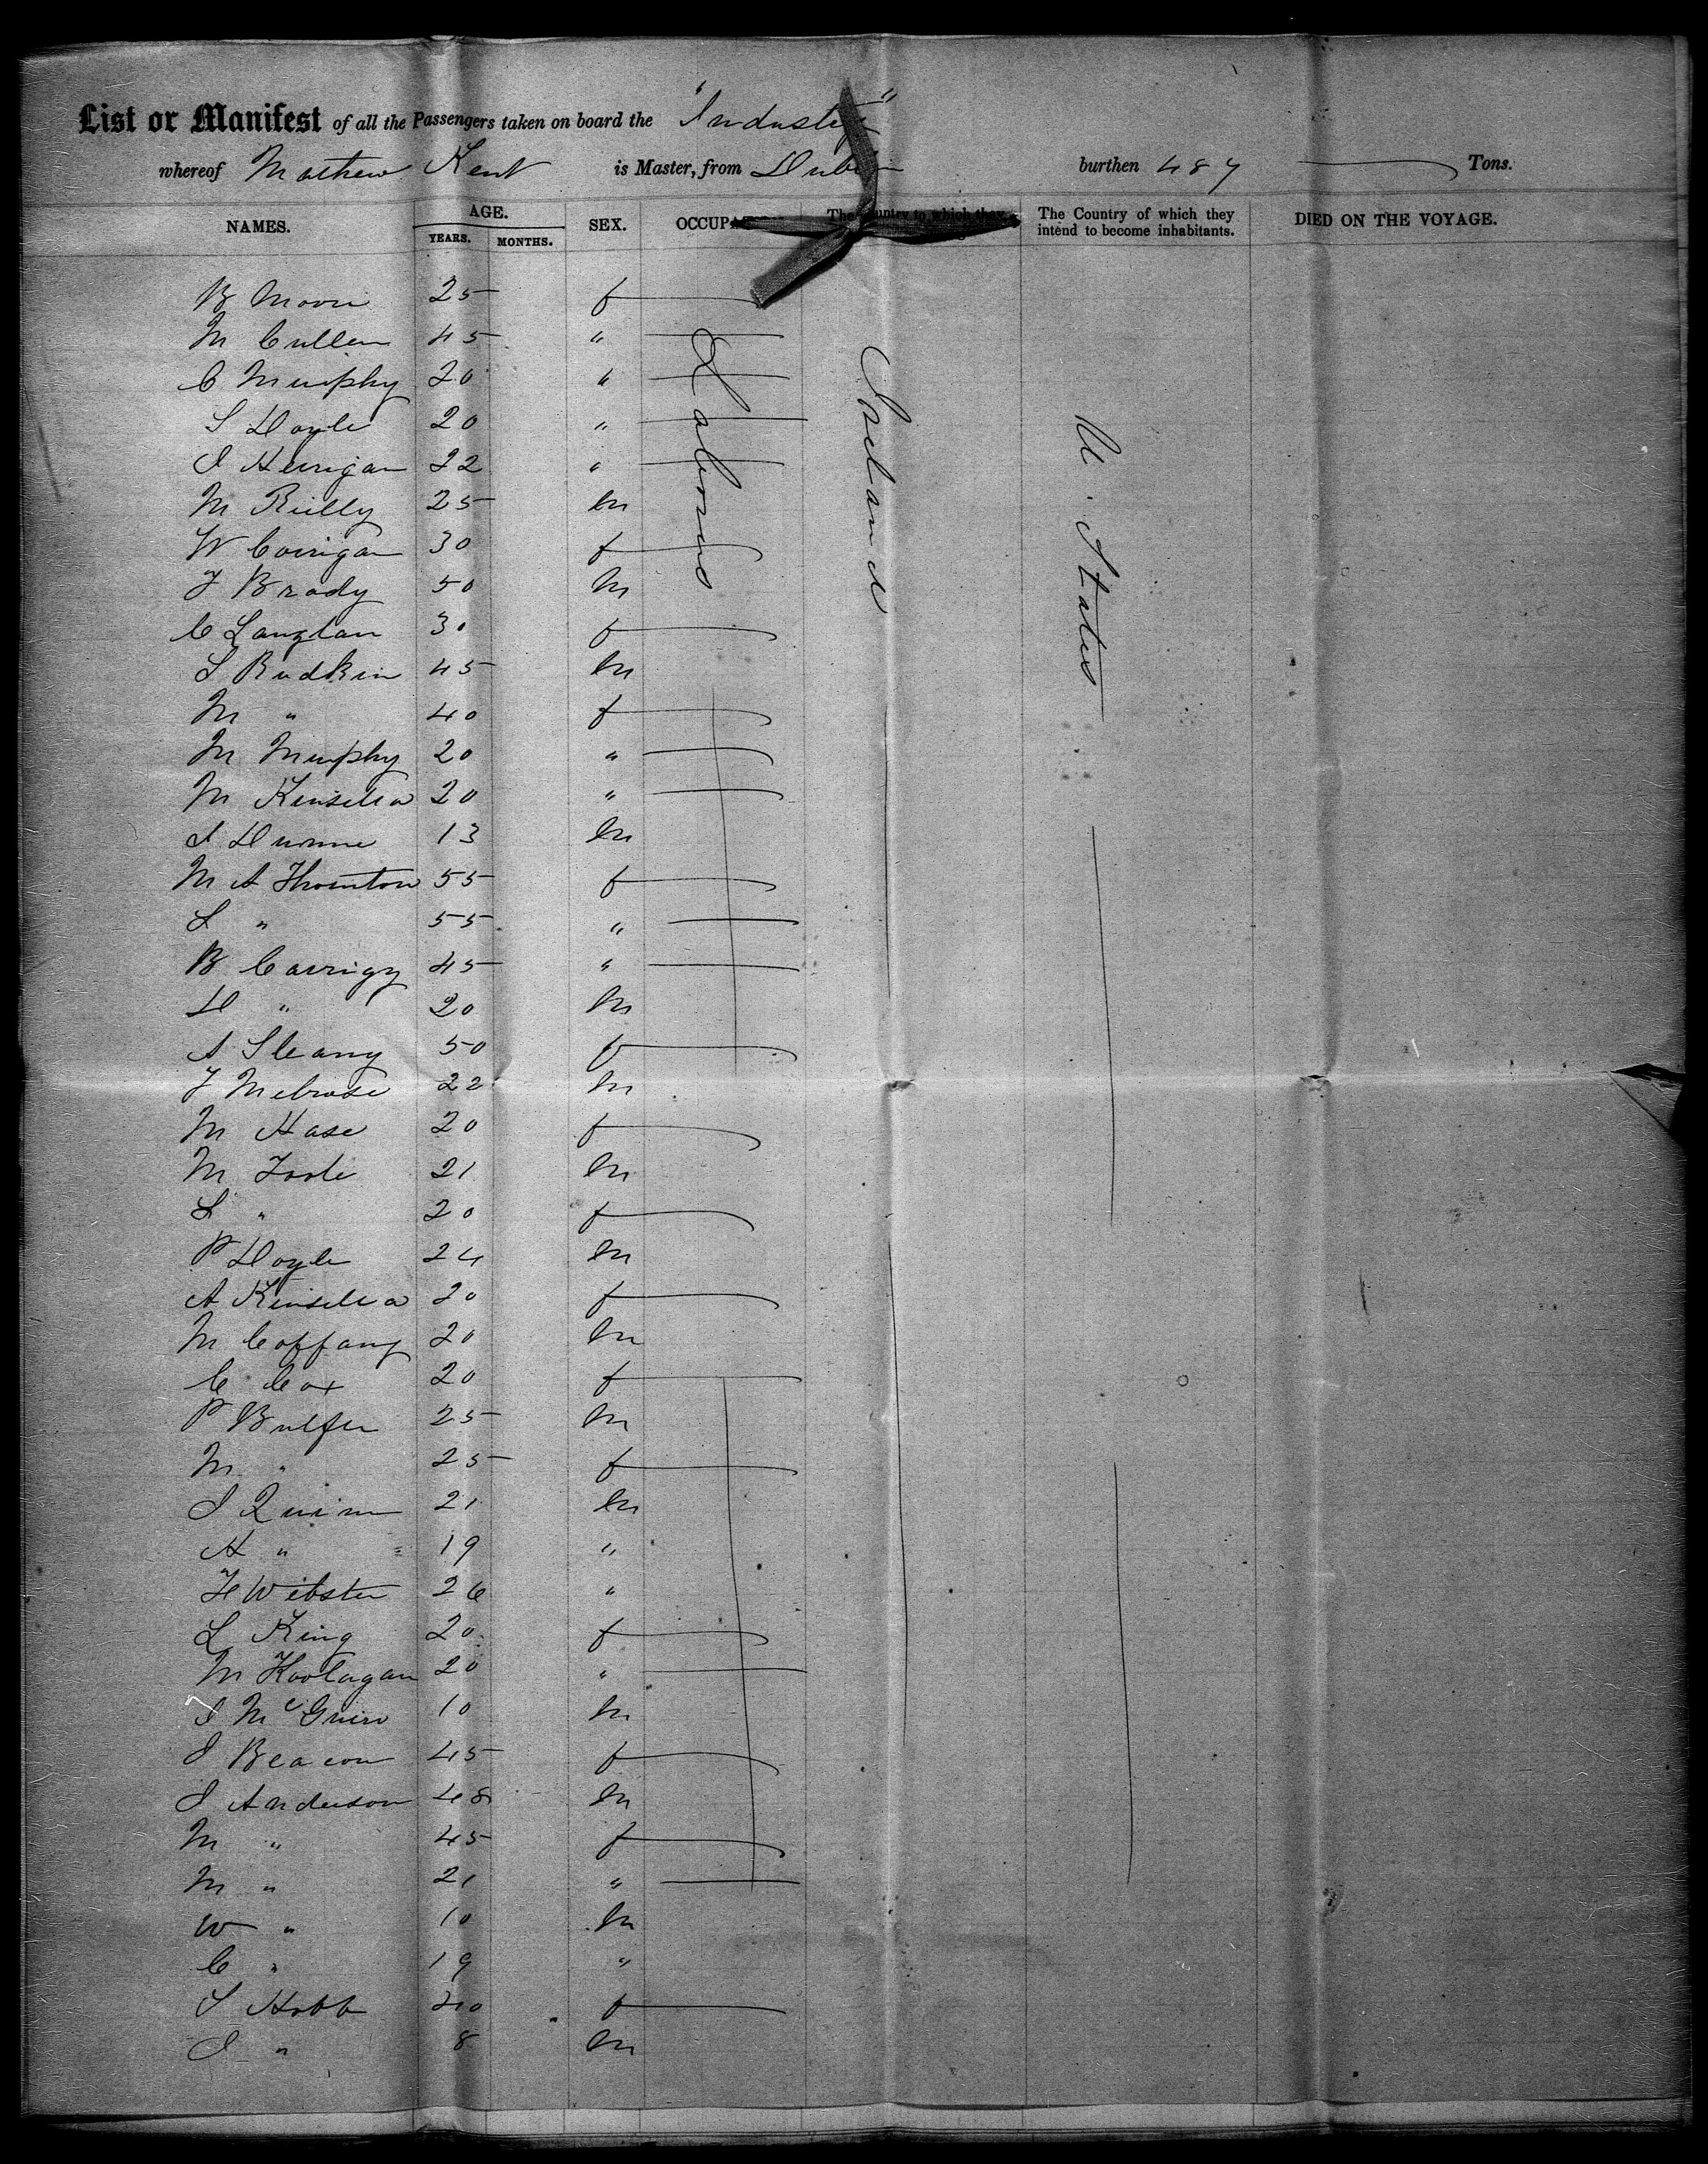 List or Manifest of all the Passengers taken on board the "Industry"
whereof Mathew Kent is Master, from Dublin burthen 487 Tons.
NAMES. AGE. SEX. The Country to which they The Country of which they DIED ON THE VOYAGE.
YEARS. MONTHS. intend to become inhabitants.
Laborers
Ireland
U. States
B Moore 25 f
M Cullen 45 "
C Murphy 20 "
S Doyle 20 "
J 22 "
M Reilly 25 m
W Corrigan 30 f
J Brady 50 m
C Langlan 30 f
L Rudkin 45 m
M " 40 f
M Murphy 20 "
M Kinsella 20 "
J Dunne 13 m
M A Thornton 55 f
L " 55 "
B Carrigy 45 "
D " 20 m
A Sleany 50 f
J Melrose 22 m
M Hase 20 f
M Toole 21 m
L " 20 f
P Doyle 24 m
A Kinsella 20 f
M Coffany 20 m
C Cox 20 f
P Bulfer 25 m
M " 25 f
J Quinn 21 m
H " 19 "
H Webster 26 "
L King 20 f
M Hoolagan 20 "
J McGuire 10 m
J Beacon 45 f
J Anderson 48 m
M " 45 f
M " 21 "
W " 10 m
C " 19 "
S Hobb 40 f
J " 8 m